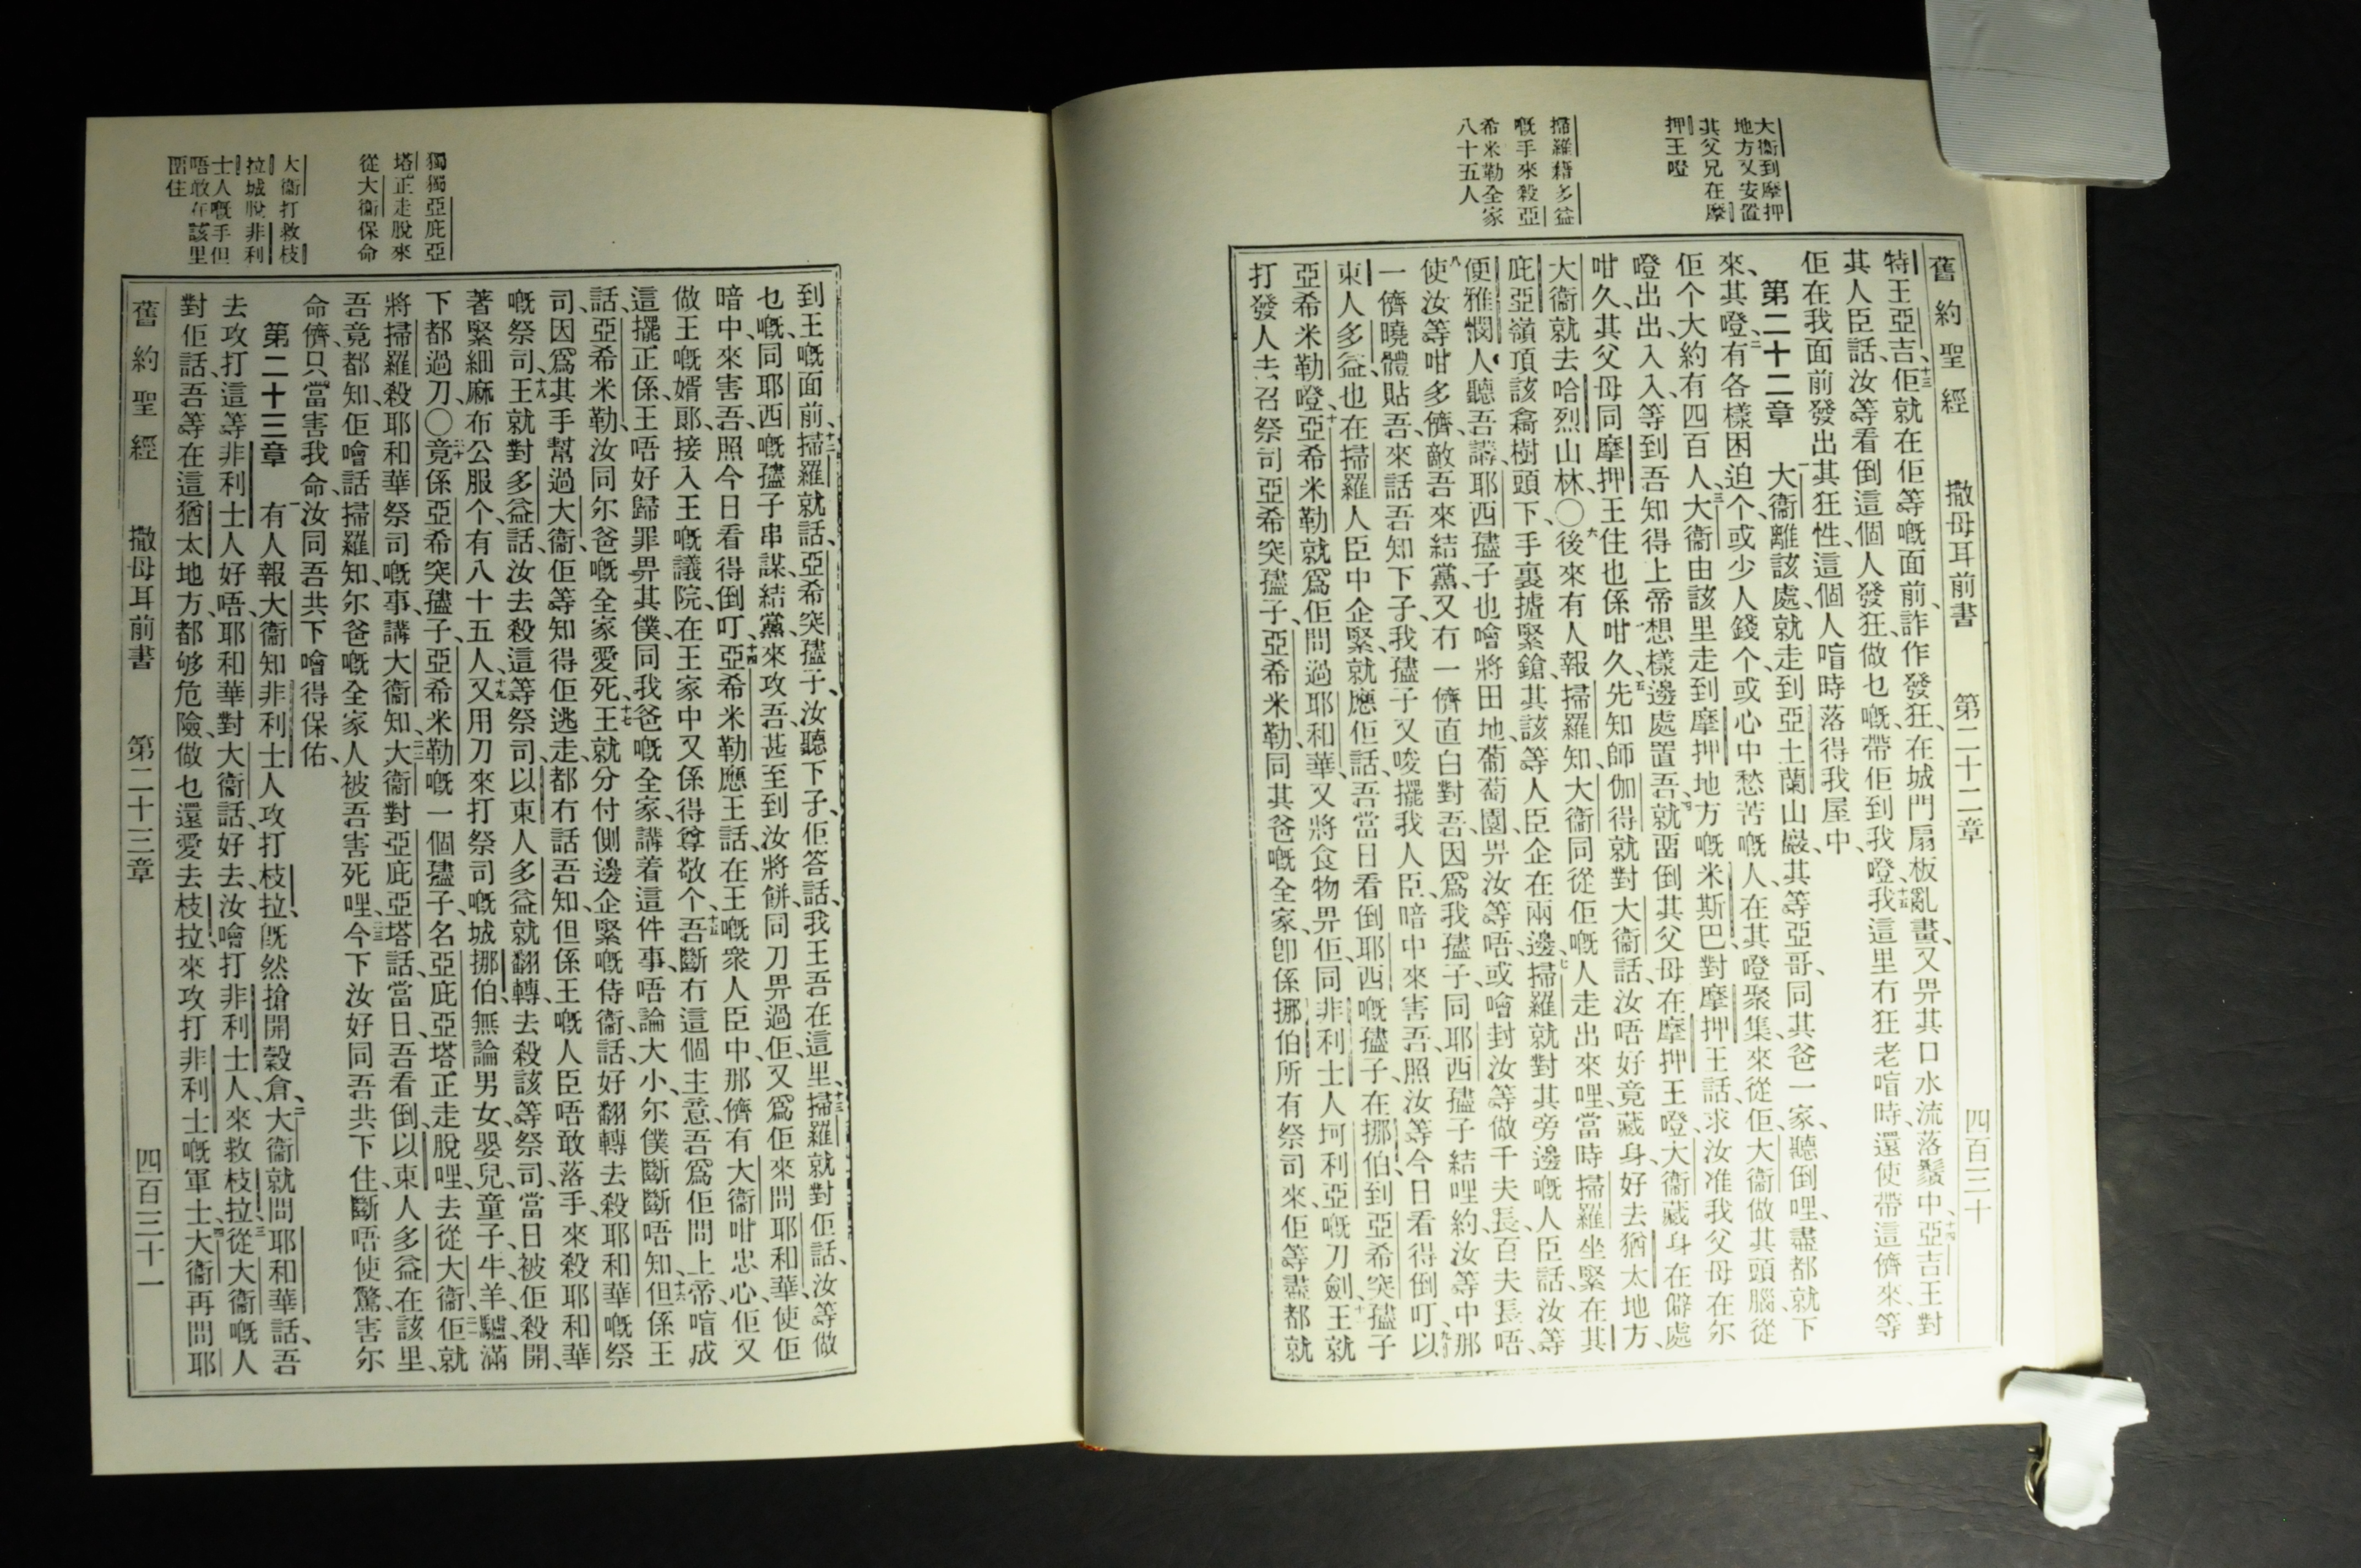 舊約聖經 撒母耳前書 第二十二章 四百三十
大衞到摩押
地方又安置
其父兄在摩
押王嶝
掃羅藉多益
嘅手來殺亞
希米勒全家
八十五人
特王亞吉、十三佢就在佢等嘅面前、詐作發狂、在城門扇板亂畫、又畀其口水流落鬚中、十四亞吉王對
其人臣話、汝等看倒這個人發狂、做乜嘅帶佢到我嶝、十五我這里冇狂老喧時、還使帶這儕來等
佢在我面前發出其狂性、這個人喧時落得我屋中、
第二十二章 一大衞離該處、就走到亞土蘭山巖、其等亞哥、同其爸一家、聽倒哩、盡都就下
來其嶝、二有各樣困迫个、或少人錢个、或心中愁苦嘅人、在其嶝聚集、來從佢、大衞做其頭腦、從
佢个大約有四百人、三大衞由該里走到摩押地方嘅米斯巴、對摩押王話、求汝准我父母在尔
嶝出出入入、等到吾知得上帝想樣邊處置吾、四就畱倒其父母在摩押王嶝、大衞藏身在僻處
咁久、其父母同摩押王住也係咁久、五先知師伽得就對大衞話、汝唔好竟藏身、好去猶太地方、
大衞就去哈烈山林、〇六後來有人報掃羅知、大衞同從佢嘅人走出來哩、當時掃羅坐緊在其
庇亞嶺頂該樹頭下、手裏揸緊鎗、其該等人臣企在兩邊、七掃羅就對其旁邊嘅人臣話、汝等
便雅憫人、聽吾講、耶西孻子也噲將田地、葡萄園、畀汝等唔、或噲封汝等做千夫長、百夫長唔、
八使汝等咁多儕、敵吾來結黨、又冇一儕直白對吾、因爲我孻子、同耶西孻子結哩約、汝等中那
一儕曉體貼吾、來話吾知下子、我孻子又唆擺我人臣、暗中來害吾、照汝等今日看得倒叮、九以
東人多益、也在掃羅人臣中企緊、就應佢話、吾當日看倒耶西嘅孻子、在挪伯到亞希突孻子
亞希米勒嶝、十亞希米勒就爲佢問過耶和華、又將食物畀佢、同非利士人坷利亞嘅刀劍、十一王就
打發人去召祭司亞希突孻子、亞希米勒、同其爸嘅全家、卽係挪伯所有祭司來、佢等盡都就
獨獨亞庇亞
塔正走脫來
從大衞保命
大衞打救枝
拉城脫非利
士人嘅手但
唔敢在該里
畱住
到王嘅面前、十二掃羅就話、亞希突孻子、汝聽下子、佢答話、我王吾在這里、十三掃羅就對佢話、汝等做
乜嘅、同耶西嘅孻子串謀、結黨、來攻吾、甚至到汝將餅、同刀畀過佢、又爲佢來問耶和華、使佢
暗中、來害吾、照今日看得倒叮、十四亞希米勒應王話、在王嘅衆人臣中、那儕有大衞咁忠心、佢又
做王嘅婿郞、接入王嘅議院、在王家中又係得尊敬个、十五吾斷冇這個主意、吾爲佢問上帝、喧成
這擺正係、王唔好歸罪畀其僕、同我爸嘅全家、講着這件事、唔論大小、尔僕斷斷唔知、十六但係王
話、亞希米勒、汝同尔爸嘅全家愛死、十七王就分付側邊企緊嘅侍衞話、好翻轉去殺耶和華嘅祭
司、因爲其手幫過大衞、佢等知得佢逃走、都冇話吾知、但係王嘅人臣唔敢落手、來殺耶和華
嘅祭司、十八王就對多益話、汝去殺這等祭司、以東人多益就翻轉、去殺該等祭司、當日被佢殺開、
著緊細麻布公服个、有八十五人、十九又用刀來打祭司嘅城挪伯、無論男女、嬰兒、童子、牛羊、驢、滿
下都過刀、〇二十竟係亞希突孻子、亞希米勒嘅一個孻子、名亞庇亞塔正走脫哩、去從大衞、二一佢就
將掃羅殺耶和華祭司嘅事、講大衞知、二二大衞對亞庇亞塔話、當日、吾看倒、以東人多益在該里、
吾竟都知、佢噲話掃羅知、尔爸嘅全家人被吾害死哩、二三今下汝好同吾共下住、斷唔使驚、害尔
命儕、只當害我命、汝同吾共下噲得保佑、
第二十三章 一有人報大衞知、非利士人攻打枝拉、旣然搶開穀倉、二大衞就問耶和華話、吾
去攻打這等非利士人好唔、耶和華對大衞話、好去、汝噲打非利士人、來救枝拉、三從大衞嘅人
對佢話、吾等在這猶太地方、都够危險、做乜還愛去枝拉、來攻打非利士嘅軍士、四大衞再問耶
舊約聖經 撒母耳前書 第二十三章 四百三十一